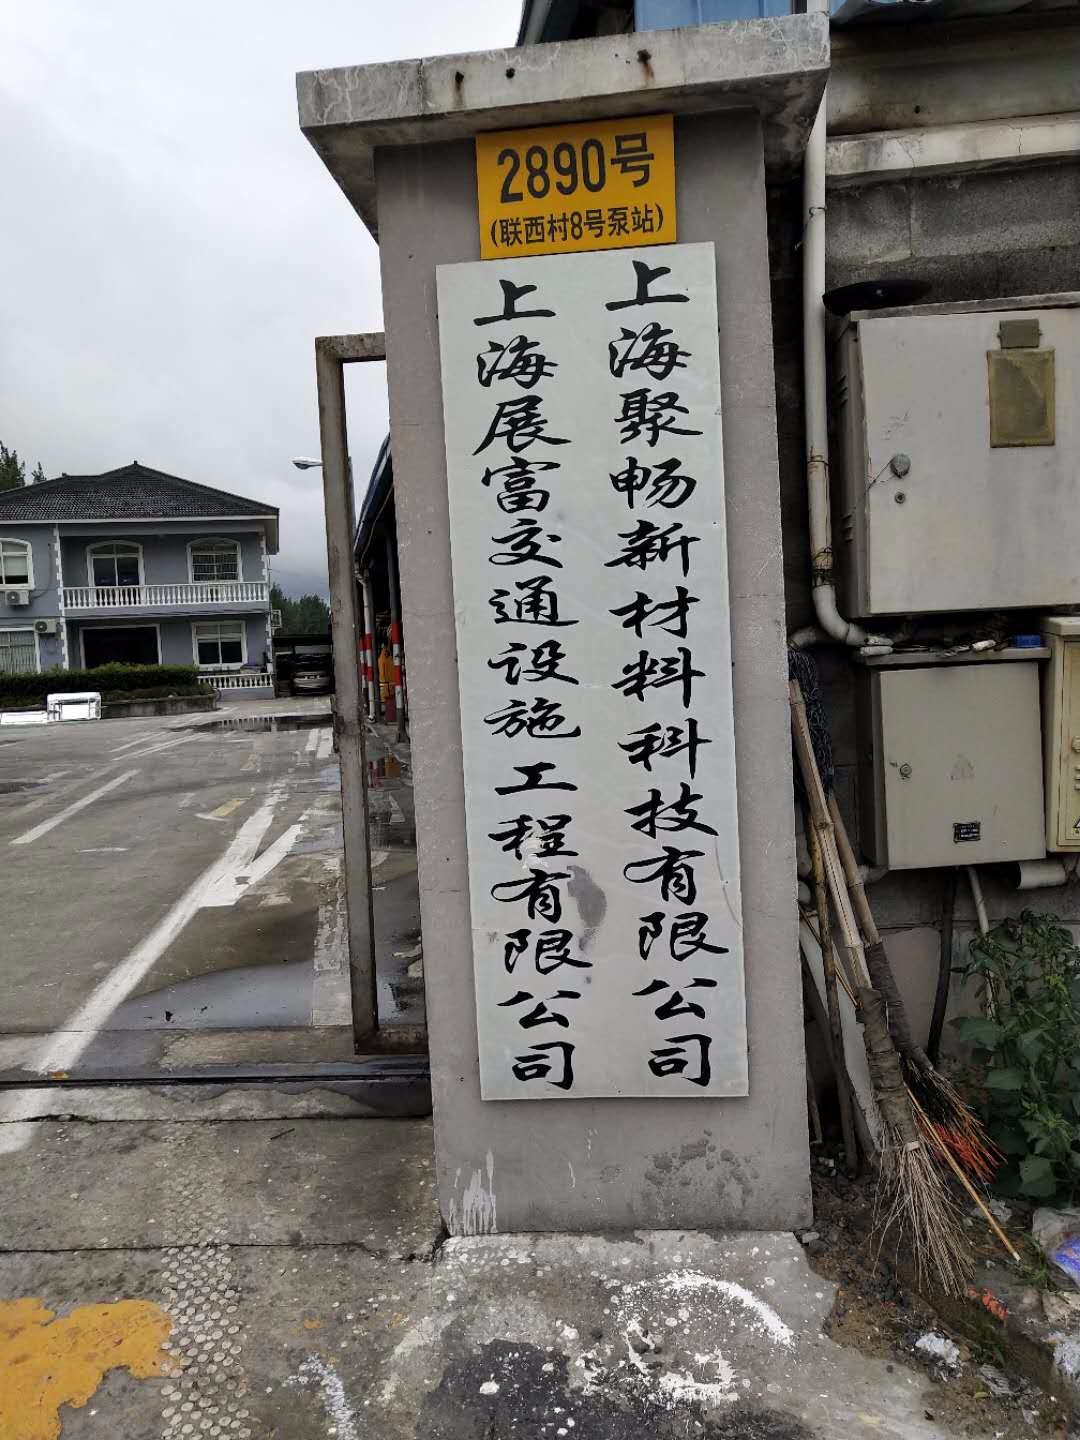 2890号
(联西村8号泵站)
上海聚畅新材料科技有限公司
上海展富交通设施工程有限公司